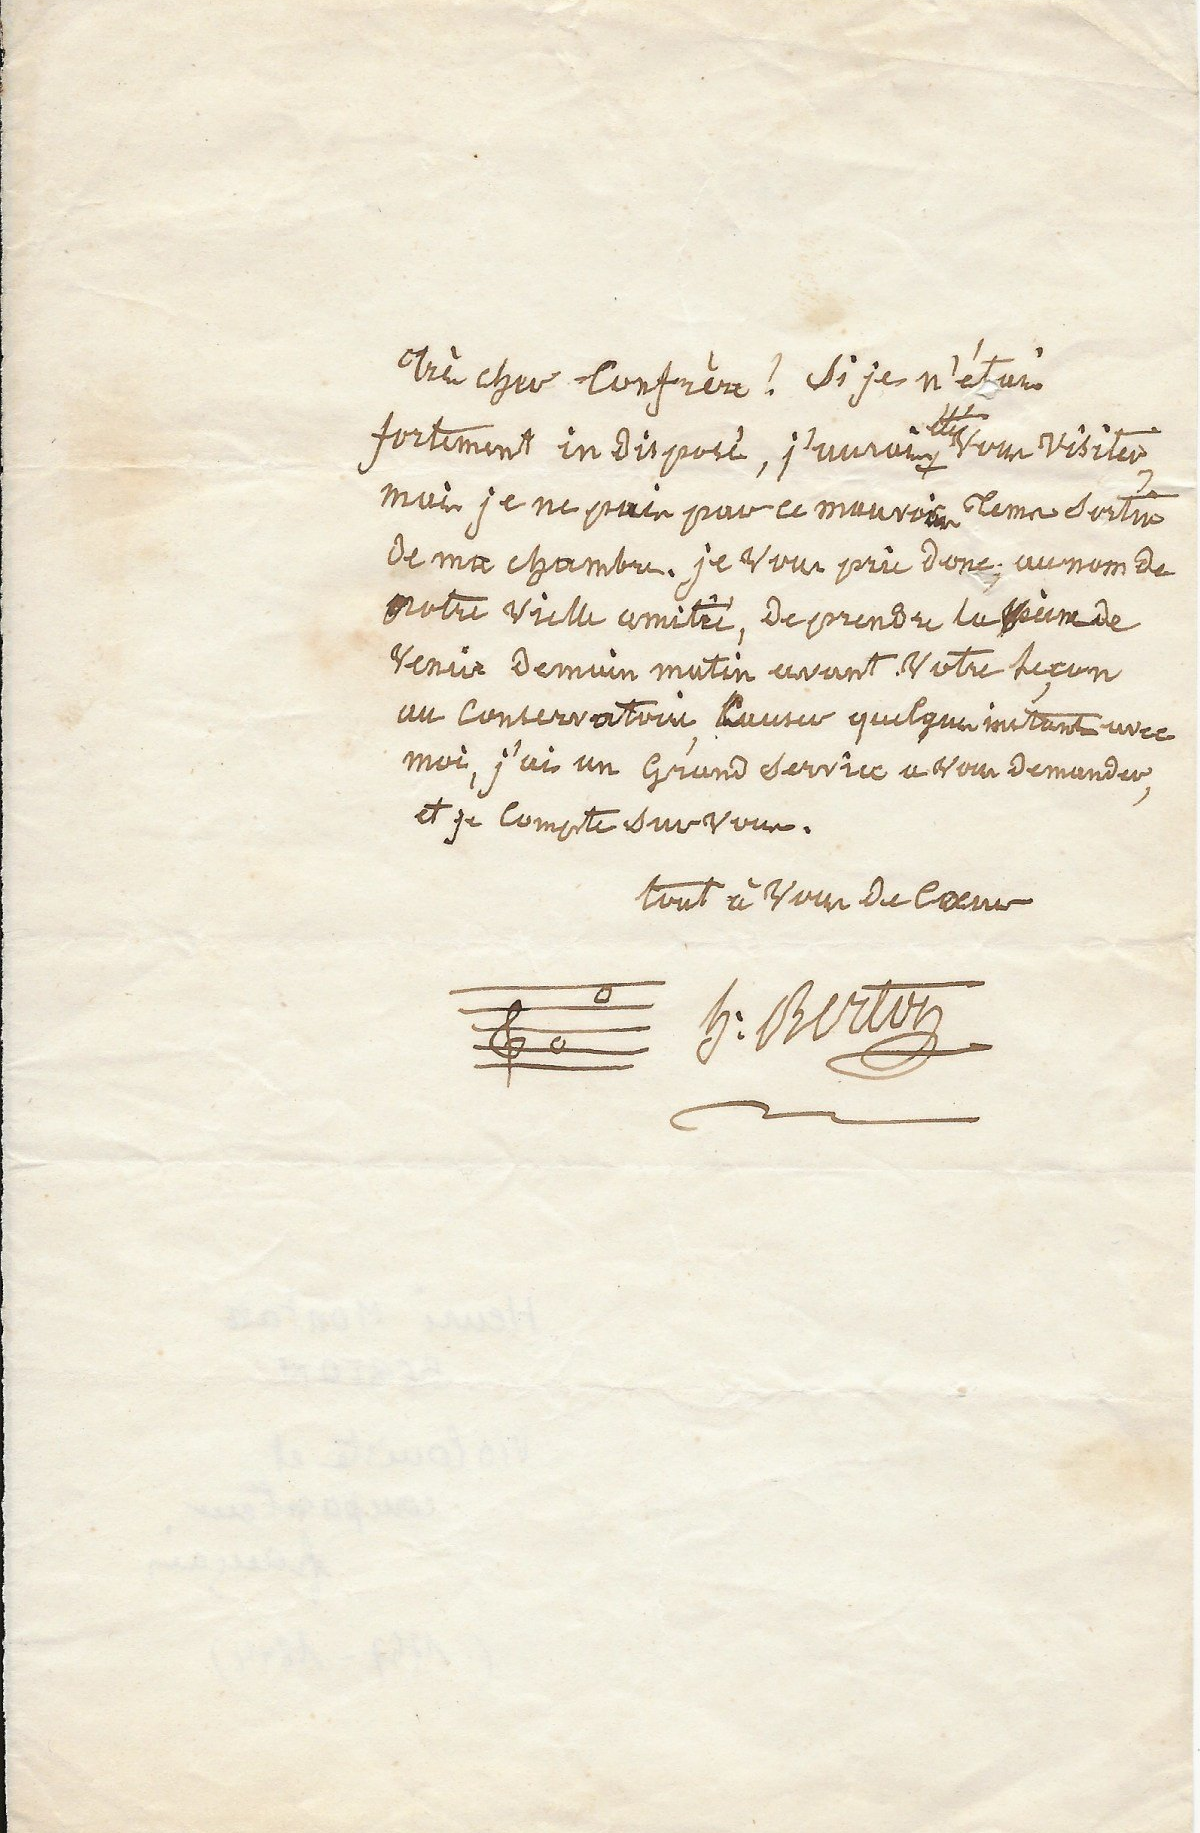 Très cher Confrère! Si je n'étais
fortement indisposé, j'aurois été vous visiter,
mais je ne puis par ce mauvais tems sortir
de ma chambre. je vous prie donc, au nom de
notre vielle amitié, de prendre la peine de
venir demain matin avant votre leçon
au Conservatoire, Causer quelques instants avec
moi, j'ai un Grand service a vous demander,
et je Compte sur vous.
tout à vous de Cœur
h: Berton